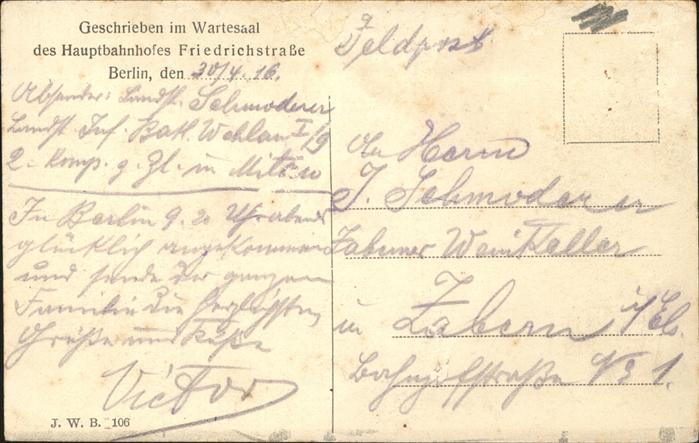 Geschrieben im Wartesaal
des Hauptbahnhofes Friedrichstraße
Berlin, den 30/4. 16.
Absender: Landst. Schmoderer
Landst. Inf. Batl. Wehlau I/9
2. Komp. z. Zt. in Mitau
In Berlin 9.20 Uhr abends
glücklich angekommen
und sende der ganzen
Familie die herzlichsten
Grüße und Küße
Victor
J. W. B. 106
Feldpost
Herrn
J. Schmoderer
Zaberner Weinkeller
in Zabern i/Els.
Bahnhofstraße No 1.